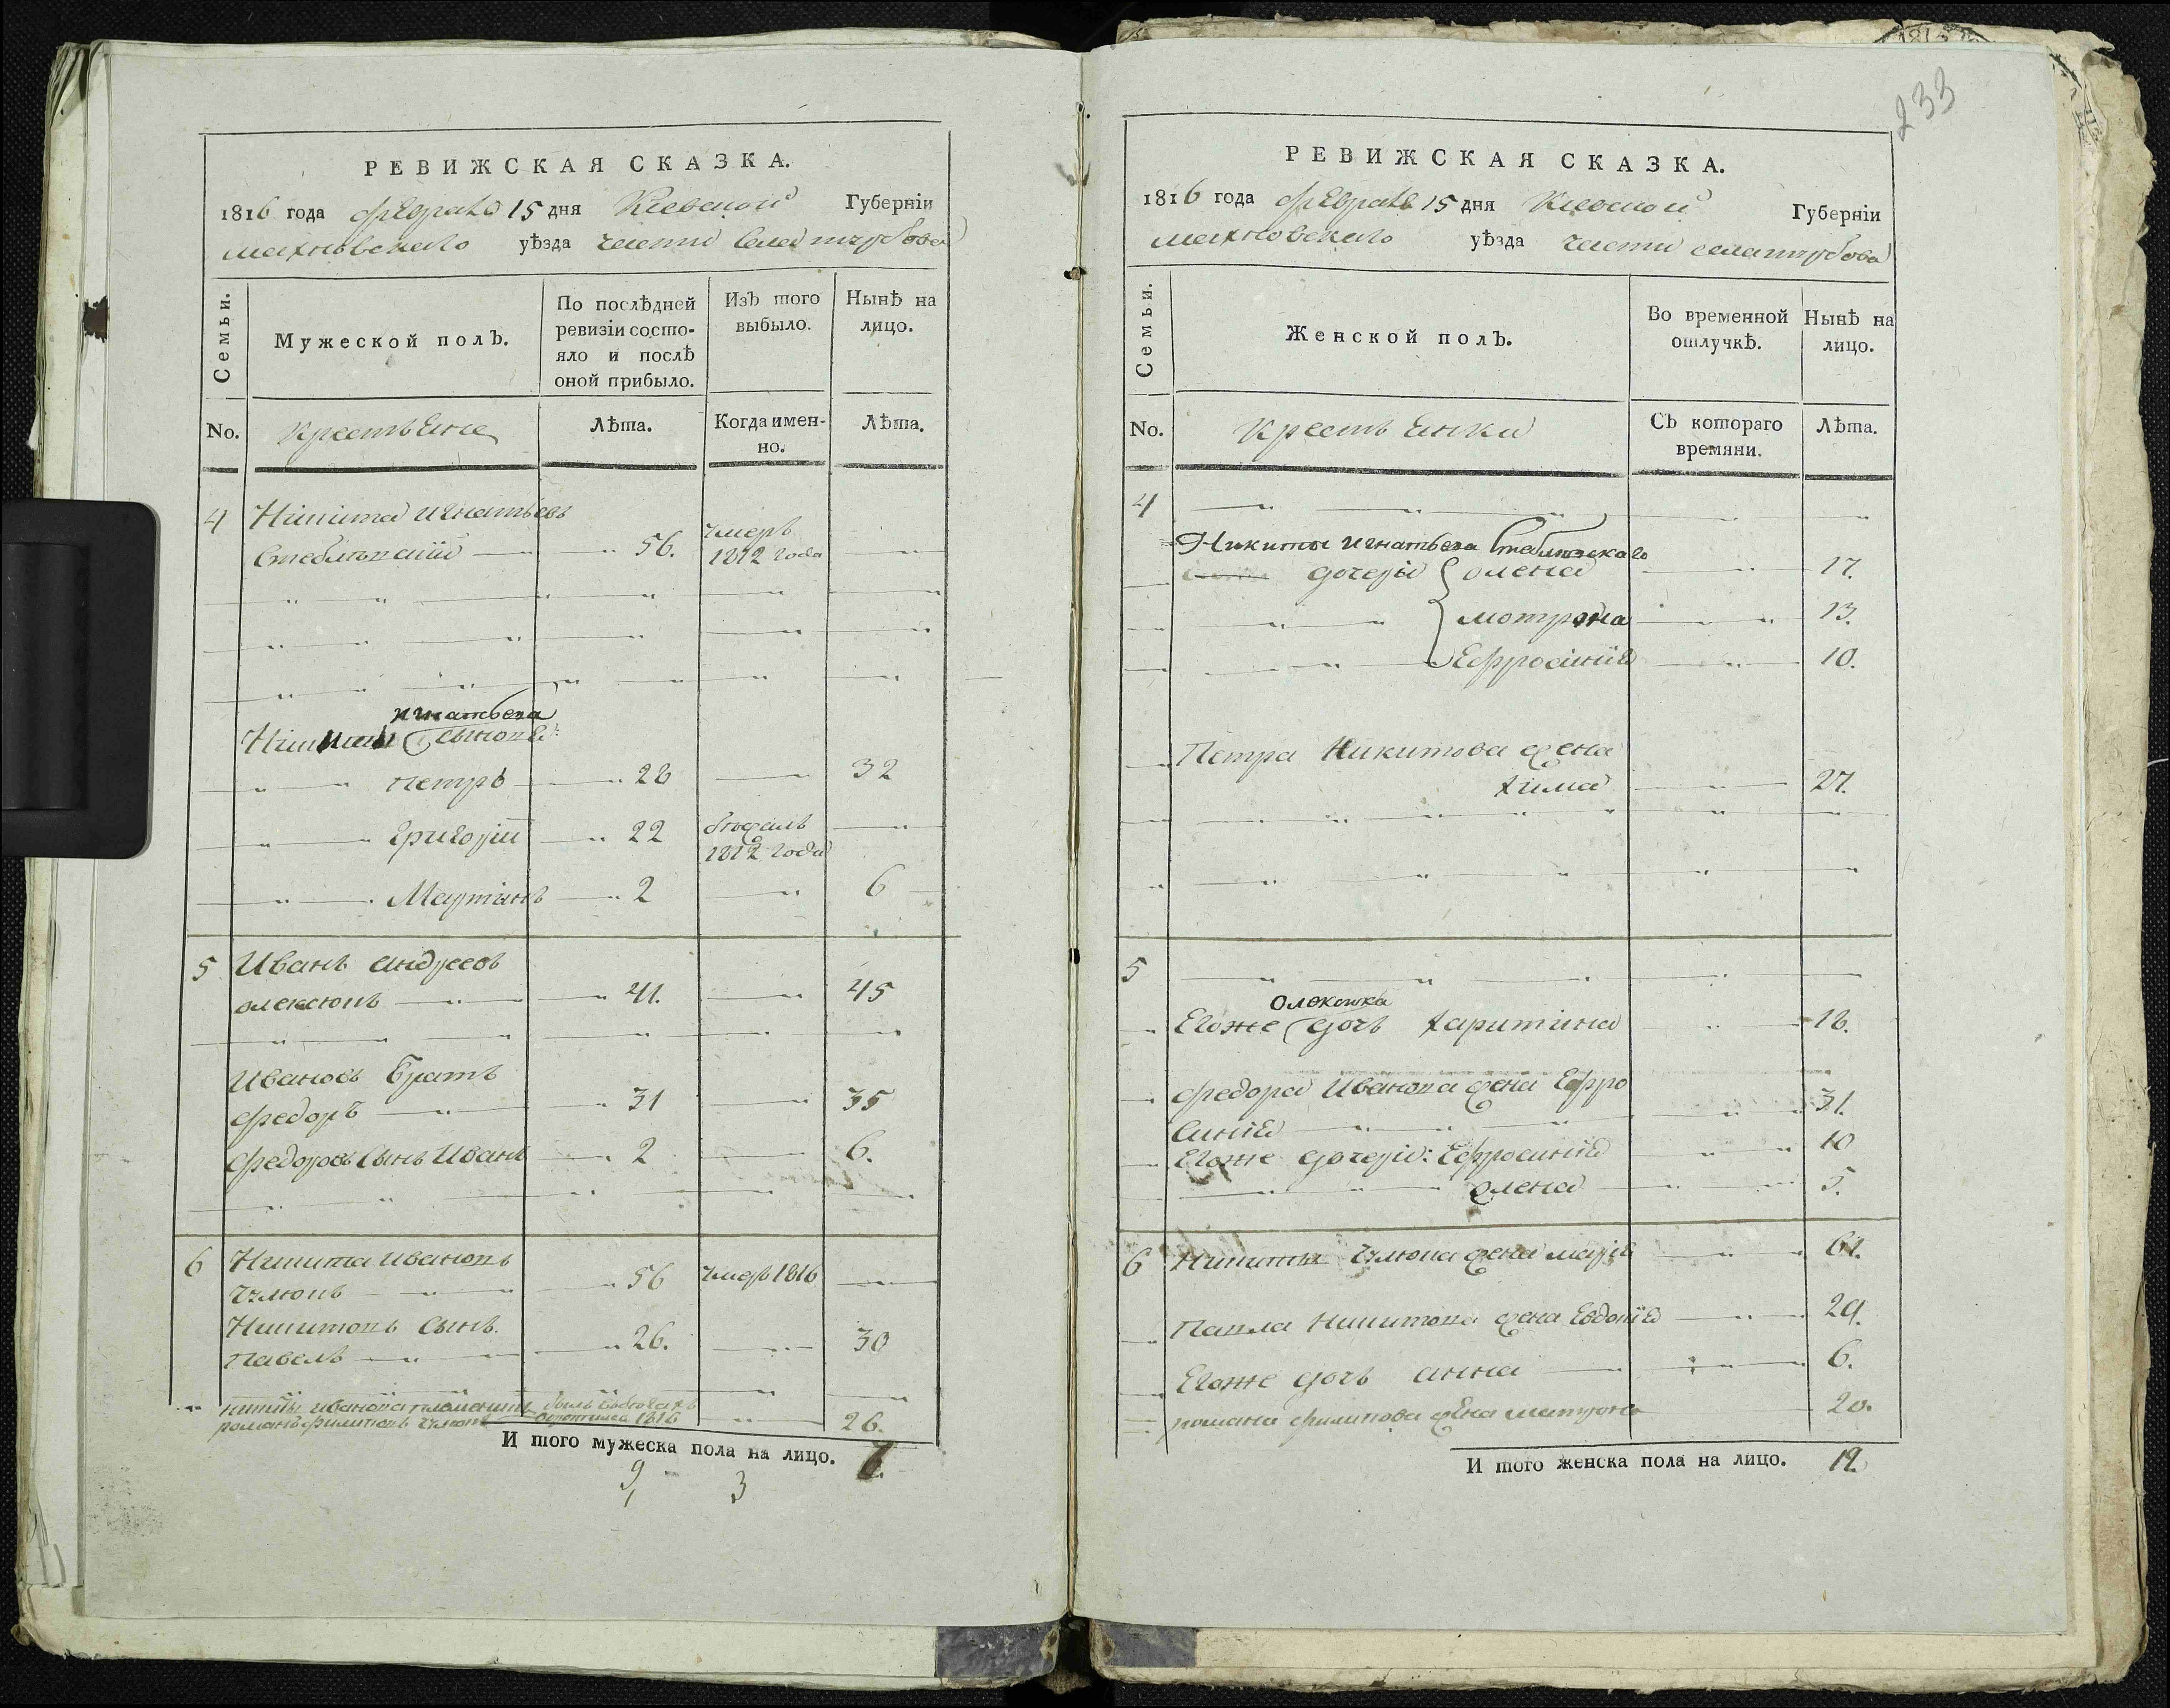 РЕВИЖСКАЯ СКАЗКА.
1816 года февраля 15 дня Киевской Губерніи
махновскаго уѣзда части села трубова
Семьи.
Мужеской полЪ.
По послѣдней
ревизіи состо-
яло и послѣ
оной прибыло.
ИзЪ того
выбыло.
Нынѣ на
лицо.
No.
крестьяне
Лѣта.
Когда имен-
но.
Лѣта.
4 Никита игнатьевъ
56. умеръ 1812 года
игнатьева
Никиты сыновья
Петръ 28 32
григорій 22 1812 года
Мартинъ 2 6
5 Иванъ андреевъ
олексюкъ 41. 45
Ивановъ братъ
федоръ 31 35
федоровъ сынъ Иванъ 2 6.
6 Никита ивановъ
56 умеръ 1816
Никитовъ сынъ
павелъ 26. 30
никиты иванова племянникъ былъ
романъ филиповъ 1816 26.
И того мужеска пола на лицо. 7.
9 3
233
РЕВИЖСКАЯ СКАЗКА.
1816 года февраля 15 дня Киевской Губерніи
махновскаго уѣзда части села трубова
Семьи.
Женской полЪ.
Во временной
отлучкѣ.
Нынѣ на
лицо.
No.
крестьянки
СЪ котораго
времяни.
Лѣта.
4
Никиты игнатьева Стеблювскаго
дочери олена 17.
мотрона 13.
Ефросинія 10.
Петра Никитова жена
химa 27.
5
олексюка
Егоже дочь харитина 18.
федора Иванова жена Ефро
синія 31.
Егоже дочери: Ефросинія 10
олена 5.
6 Никиты жена марія 61.
Павла Никитова жена Евдокія 29.
Егоже дочь анна 6.
романа филипова жена матрона 20.
И того женска пола на лицо. 12.